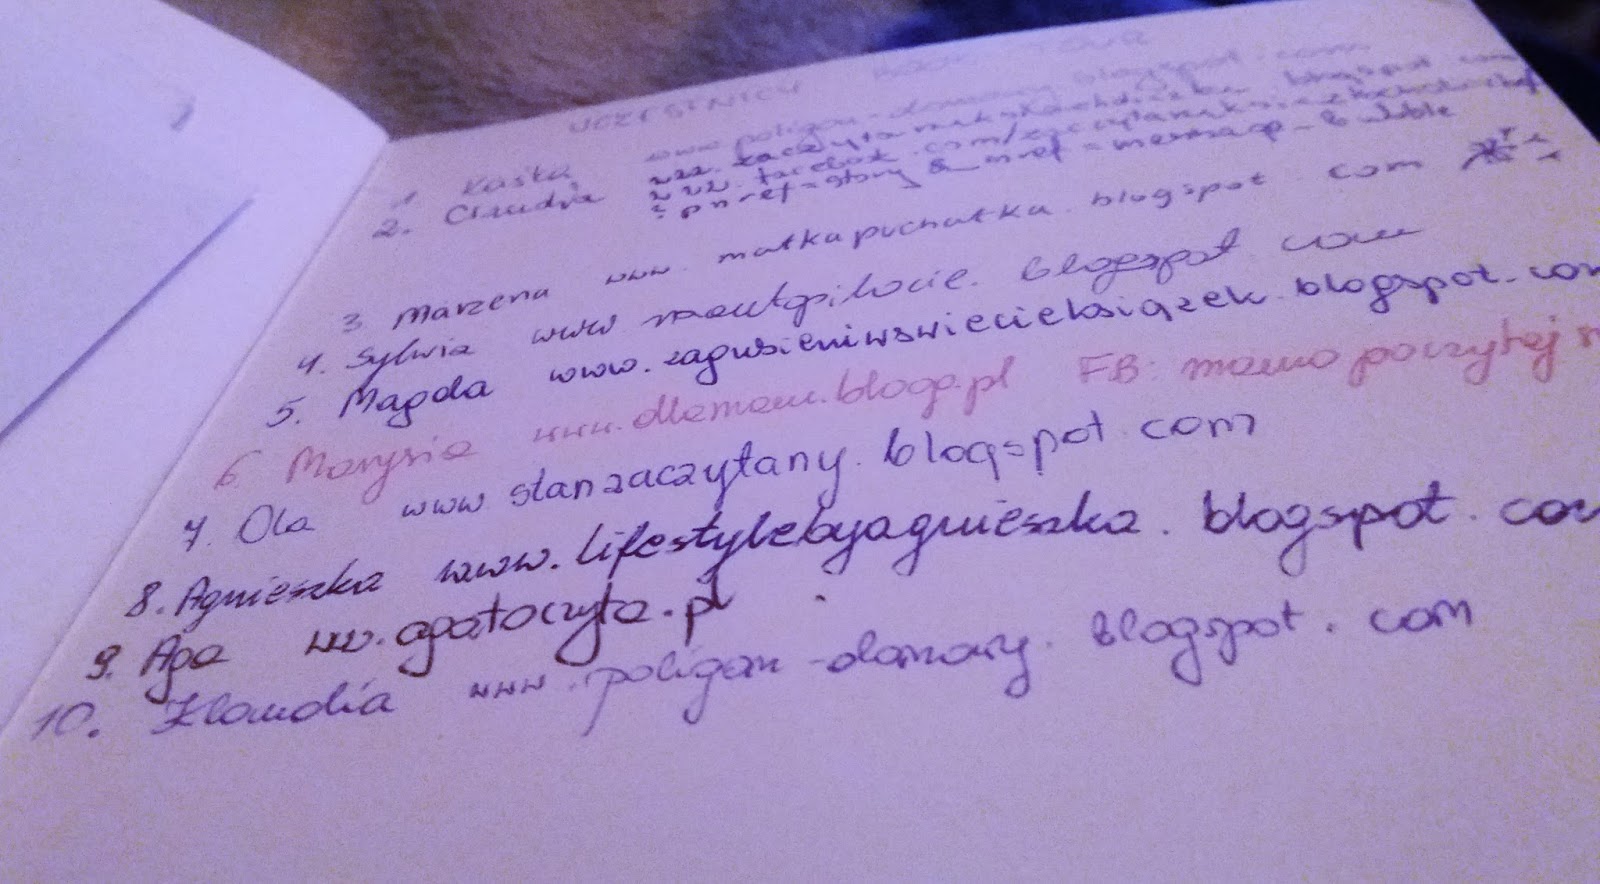 UCZESTNICY BOOK TOUR
1 Kaśka www.poligon-domowy.blogspot.com
2. Claudia www. blogspot.com
www.facebook.com/
?pnref=story & nref=message_bubble
3 Marzena www. matkapuchatka.blogspot.com
4. Sylwia www blogspot.com
5. Magda www.zagubieniwswiecieksiązek.blogspot.com
6. Marysia www.dlamam.blogo.pl FB: mamo poczytaj
7. Ola www stanzaczytany.blogspot.com
8. Agnieszka www.lifestylebyagnieszka.blogspot.com
9. Aga ww.agatoczyta.pl
10. Klaudia www.poligon-domowy.blogspot.com